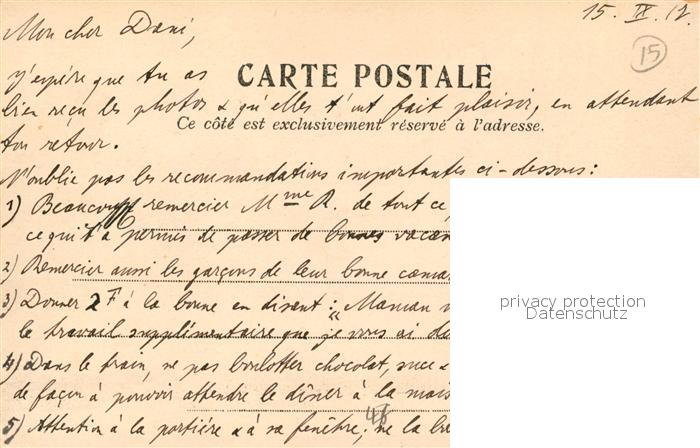 15. IX. 12.
15
Mon cher Dani,
j'espère que tu as
CARTE POSTALE
bien reçu les photos & qu'elles t'ont fait plaisir, en attendant
Ce côté est exclusivement réservé à l'adresse.
ton retour.
N'oublie pas les recommandations importantes ci-dessous:
1) Beaucoup remercier Mme R. de tout ce
ce qui t'a permis de passer de bonnes vacan
2) Remercier aussi les garçons de leur bonne camar
3) Donner 2F à la bonne en disant: "Maman
privacy protection
Datenschutz
le travail supplémentaire que je vous ai
4) Dans le train, ne pas boulotter chocolat, suce &
de façon à pouvoir attendre le dîner à la mais
46
5) Attention à la portière & à sa fenêtre; ne la